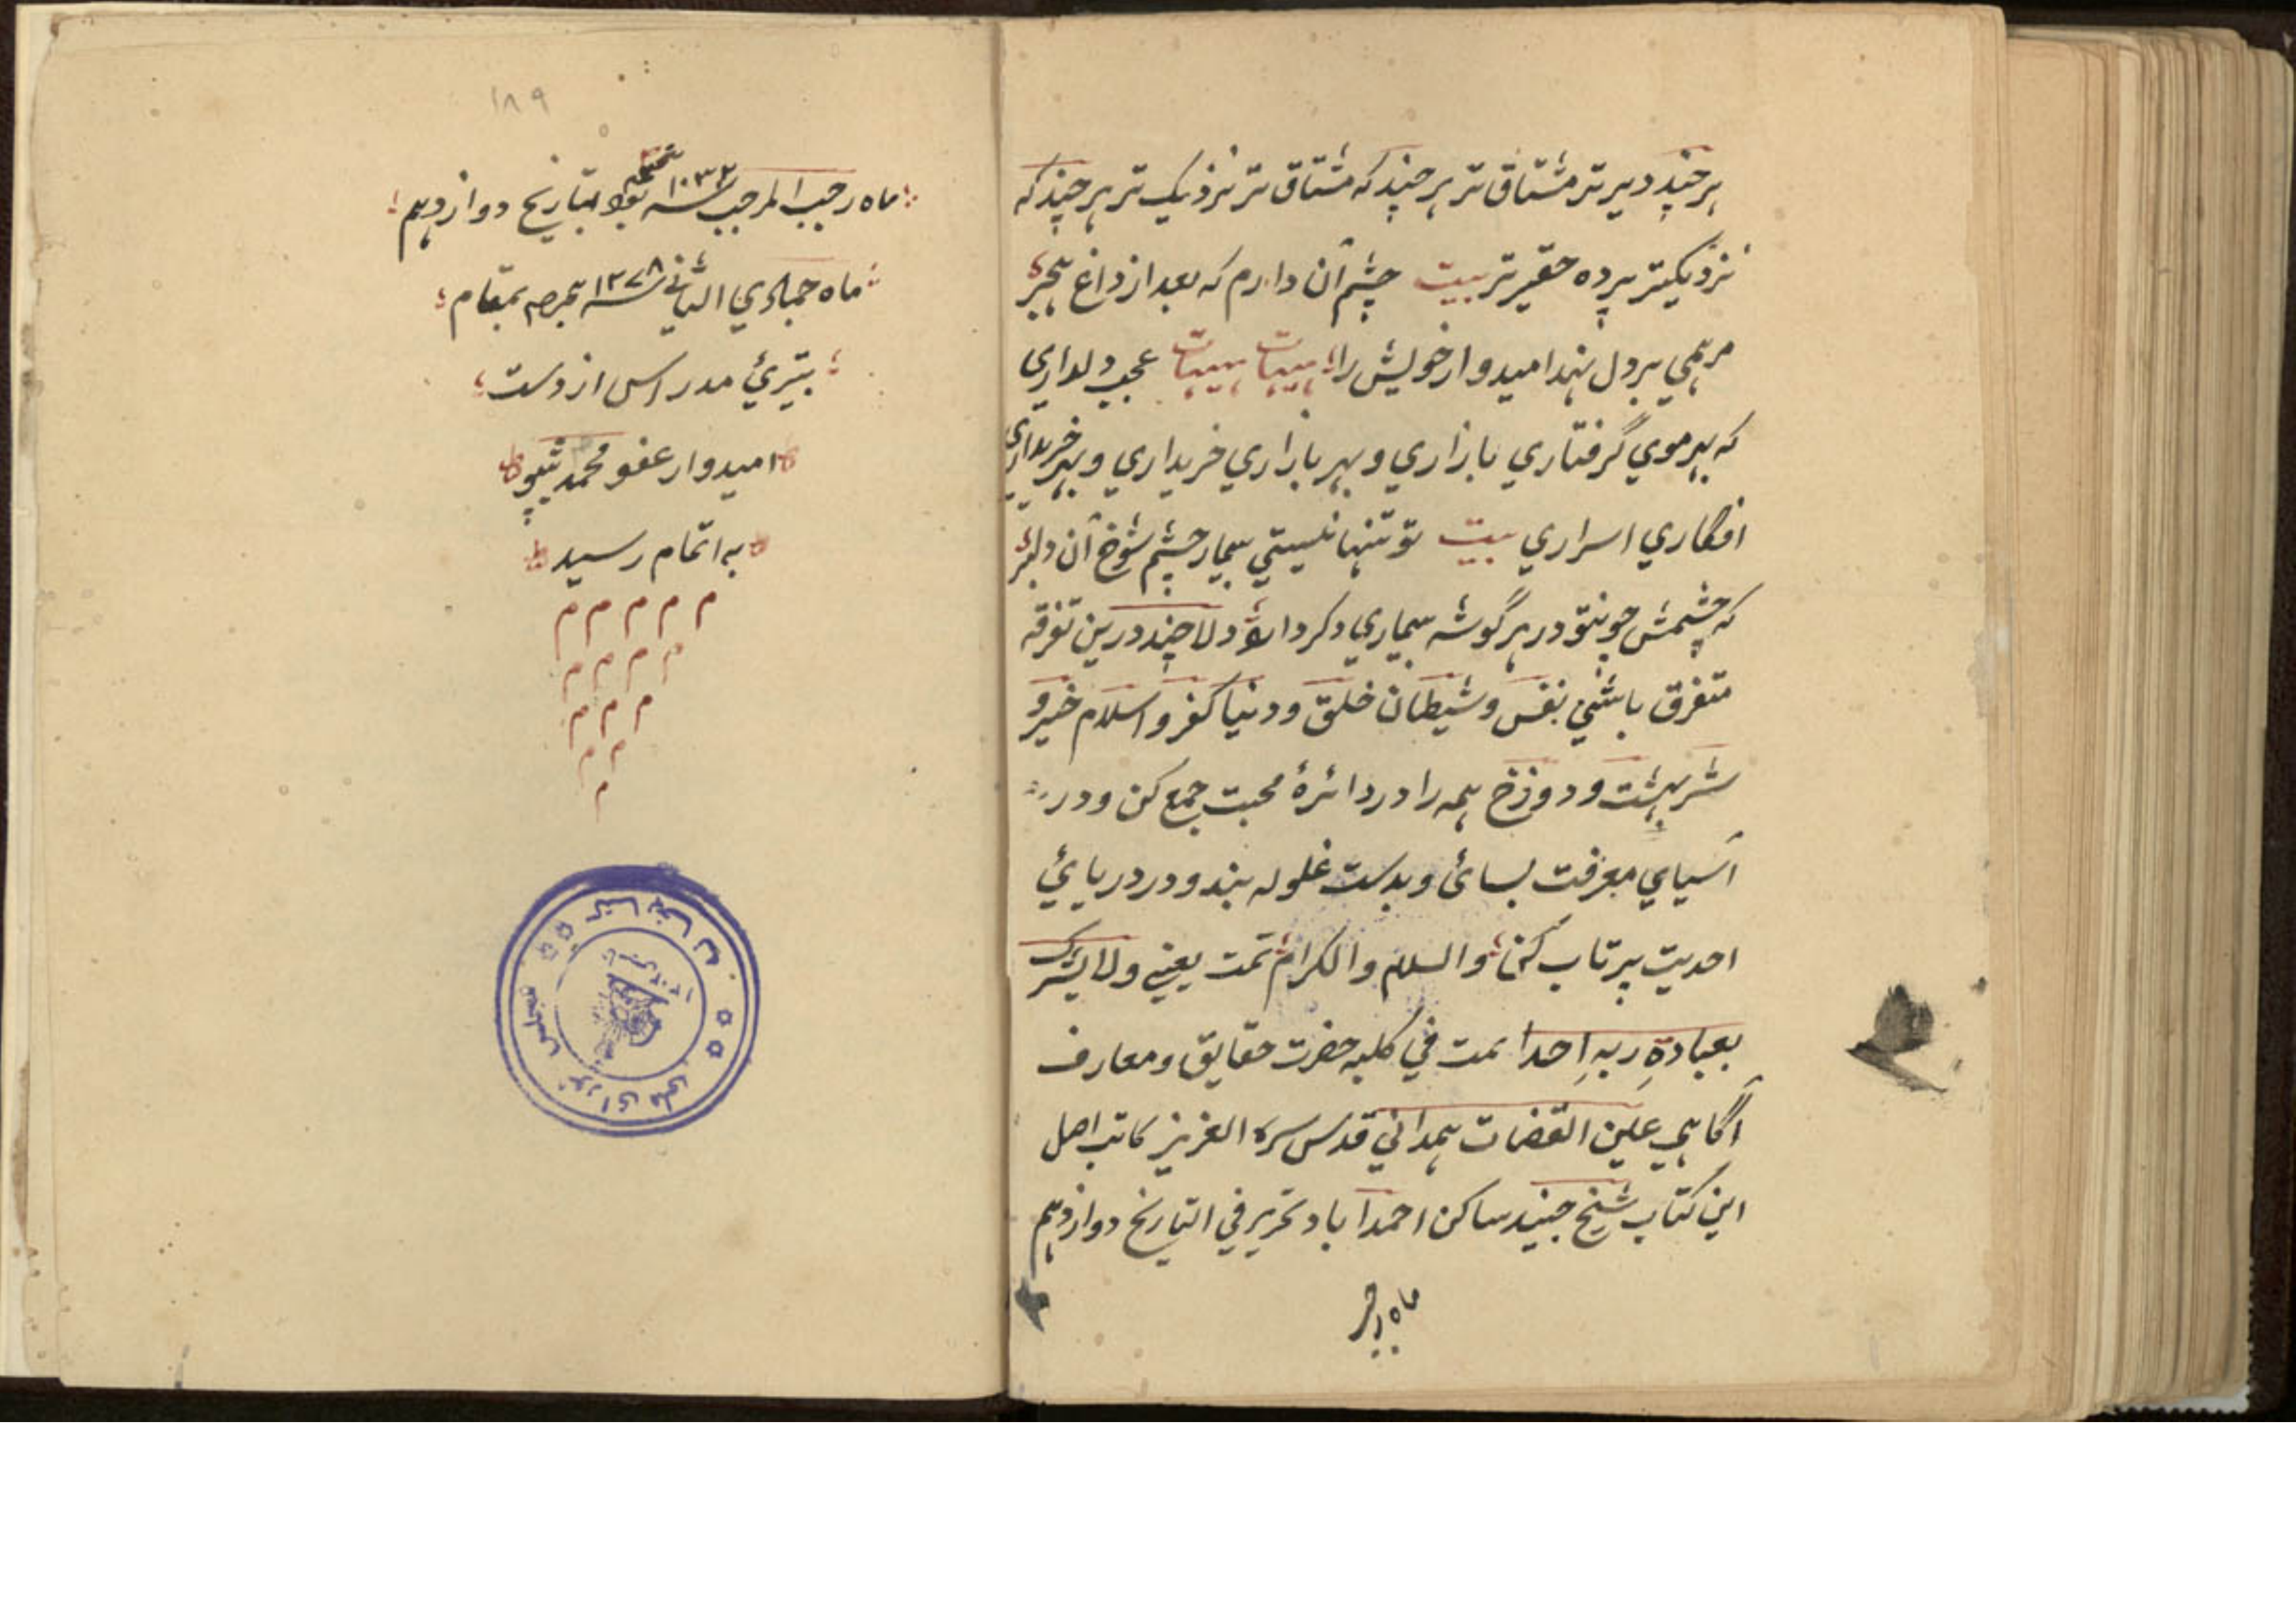 هرچند دیرتر مشتاق تر هرچند که مشتاق تر نزدیک تر هرچند که
نزدیکتر پرده حقیرتر بیت چشم آن دارم که بعد از داغ هجر
مرهمي بر دل نهد امیدوار خویش را هیهات هیهات عجب دلداري
که بهر موي گرفتاري بازاري و بهر بازاري خریداري و بهر خریداري
افکاري اسراري بیت تو تنها نیستي بیمار چشم شوخ آن دلبر
که چشمش چو تو در هر گوشه بیماري دکر دارد دلا چند درین تفرقه
متفرق باشي نفس و شیطان خلق و دنیا کفر و اسلام خیر و
شر بهشت و دوزخ همه را در دائرهٔ محبت جمع کن و در
آسیاي معرفت بسائ و بدست غلوله بند و در دریائي
احدیت پرتاب کن والسلام والکرام تمت یعني ولا یشرک
بعبادةِ ربهِ احدا تمت في کلبه حضرت حقایق و معارف
آگاهي عین القضات همداني قدس سره العزیز کاتب اصل
این کتاب شیخ جنید ساکن احمدآباد تحریر في التاریخ دوازدهم
ماه رجب
۱۸۹
ماه رجب المرجب سنه ۱۰۳۳ بود بتاریخ دوازدهم
ماه جمادي الثاني سنه ۱۲۷۸ هجریه بمقام
مدراس از دست
امیدوار عفو محمد ٹیپو
به اتمام رسید
م م م م م
م م م م
م م م
م م
م
کتابخانه مجلس شورای ملی